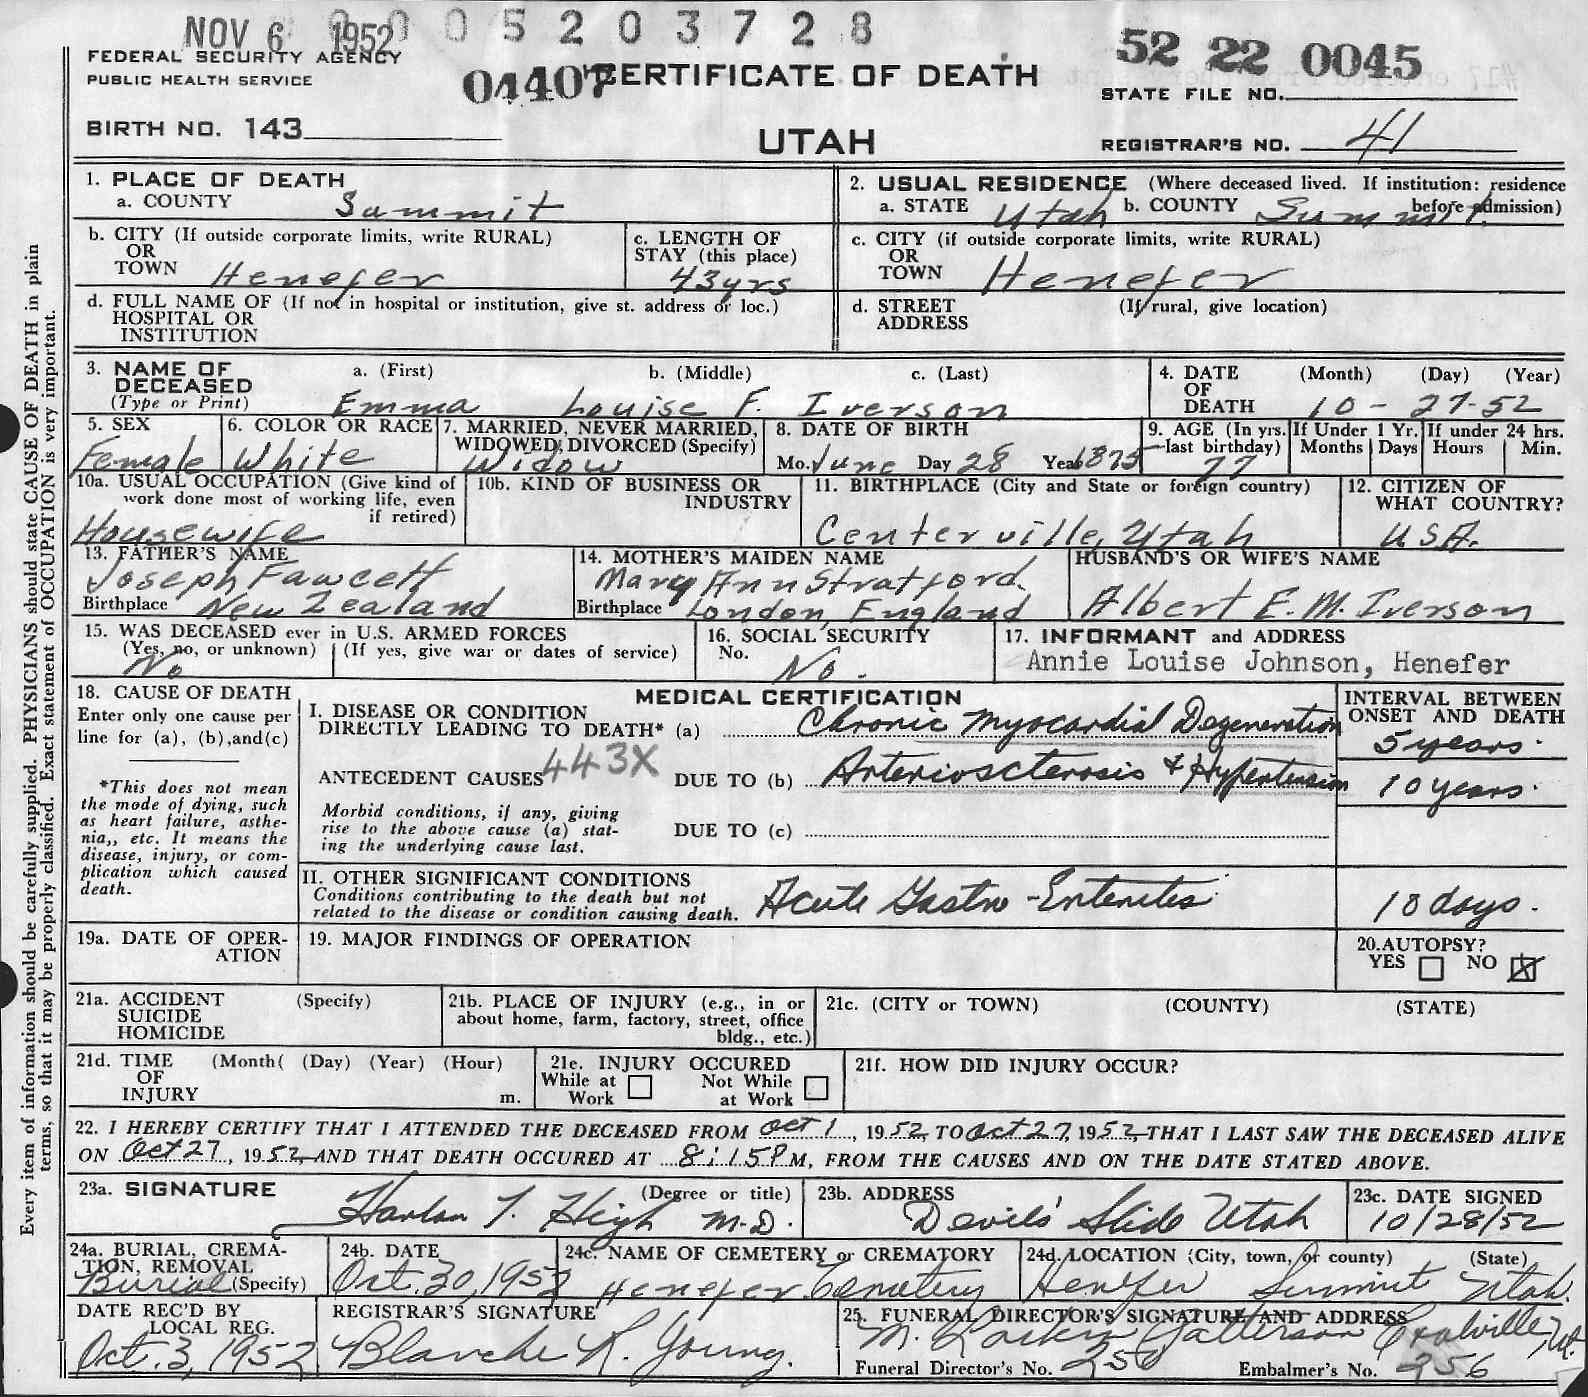 NOV 6 1952 0005203728
FEDERAL SECURITY AGENCY
PUBLIC HEALTH SERVICE
04407 CERTIFICATE OF DEATH
52 22 0045
STATE FILE NO.
BIRTH NO. 143
UTAH
REGISTRAR'S NO. 41
1. PLACE OF DEATH
a. COUNTY Summit
2. USUAL RESIDENCE (Where deceased lived. If institution: residence before admission)
a. STATE Utah b. COUNTY Summit
b. CITY (If outside corporate limits, write RURAL)
OR
TOWN Henefer
c. LENGTH OF
STAY (this place)
43 yrs
c. CITY (if outside corporate limits, write RURAL)
OR
TOWN Henefer
d. FULL NAME OF (If not in hospital or institution, give st. address or loc.)
HOSPITAL OR
INSTITUTION
d. STREET (If rural, give location)
ADDRESS
3. NAME OF DECEASED
(Type or Print)
a. (First) b. (Middle) c. (Last)
Emma Louise F. Iverson
4. DATE OF DEATH (Month) (Day) (Year)
10-27-52
5. SEX
Female
6. COLOR OR RACE
White
7. MARRIED, NEVER MARRIED,
WIDOWED, DIVORCED (Specify)
Widow
8. DATE OF BIRTH
Mo. June Day 28 Year 1875
9. AGE (In yrs. last birthday)
77
If Under 1 Yr.
Months Days
If under 24 hrs.
Hours Min.
10a. USUAL OCCUPATION (Give kind of
work done most of working life, even
if retired)
Housewife
10b. KIND OF BUSINESS OR
INDUSTRY
11. BIRTHPLACE (City and State or foreign country)
Centerville, Utah
12. CITIZEN OF
WHAT COUNTRY?
U.S.A.
13. FATHER'S NAME
Joseph Fawcett
Birthplace New Zealand
14. MOTHER'S MAIDEN NAME
Mary Ann Stratford.
Birthplace London, England
HUSBAND'S OR WIFE'S NAME
Albert E. M. Iverson
15. WAS DECEASED ever in U.S. ARMED FORCES
(Yes, no, or unknown) (If yes, give war or dates of service)
No
16. SOCIAL SECURITY
No.
No.
17. INFORMANT and ADDRESS
Annie Louise Johnson, Henefer
18. CAUSE OF DEATH
Enter only one cause per
line for (a), (b), and (c)
*This does not mean
the mode of dying, such
as heart failure, asthe-
nia,, etc. It means the
disease, injury, or com-
plication which caused
death.
MEDICAL CERTIFICATION
INTERVAL BETWEEN
ONSET AND DEATH
I. DISEASE OR CONDITION
DIRECTLY LEADING TO DEATH* (a) Chronic Myocardial Degeneration
5 years.
ANTECEDENT CAUSES 443X DUE TO (b) Arteriosclerosis & Hypertension
10 years.
Morbid conditions, if any, giving
rise to the above cause (a) stat-
ing the underlying cause last.
DUE TO (c)
II. OTHER SIGNIFICANT CONDITIONS
Conditions contributing to the death but not
related to the disease or condition causing death.
Acute Gastro-Enteritis
10 days.
19a. DATE OF OPER-
ATION
19. MAJOR FINDINGS OF OPERATION
20. AUTOPSY?
YES NO
21a. ACCIDENT (Specify)
SUICIDE
HOMICIDE
21b. PLACE OF INJURY (e.g., in or
about home, farm, factory, street, office
bldg., etc.)
21c. (CITY or TOWN) (COUNTY) (STATE)
21d. TIME (Month( (Day) (Year) (Hour)
OF
INJURY m.
21e. INJURY OCCURED
While at Work Not While at Work
21f. HOW DID INJURY OCCUR?
22. I HEREBY CERTIFY THAT I ATTENDED THE DECEASED FROM Oct 1, 1952, TO Oct 27, 1952, THAT I LAST SAW THE DECEASED ALIVE
ON Oct 27, 1952, AND THAT DEATH OCCURED AT 8:15 P M, FROM THE CAUSES AND ON THE DATE STATED ABOVE.
23a. SIGNATURE (Degree or title)
Harlan T. High M.D.
23b. ADDRESS
Devils' Slide Utah
23c. DATE SIGNED
10/28/52
24a. BURIAL, CREMA-
TION, REMOVAL
Burial (Specify)
24b. DATE
Oct. 30, 1952
24c. NAME OF CEMETERY or CREMATORY
Henefer Cemetery
24d. LOCATION (City, town, or county) (State)
Henefer Summit Utah.
DATE REC'D BY
LOCAL REG.
Oct. 3, 1952
REGISTRAR'S SIGNATURE
Blanche R. Young.
25. FUNERAL DIRECTOR'S SIGNATURE AND ADDRESS
Patterson Coalville, Ut.
Funeral Director's No. 250 Embalmer's No. 256
Every item of information should be carefully supplied. PHYSICIANS should state CAUSE OF DEATH in plain
terms, so that it may be properly classified. Exact statement of OCCUPATION is very important.